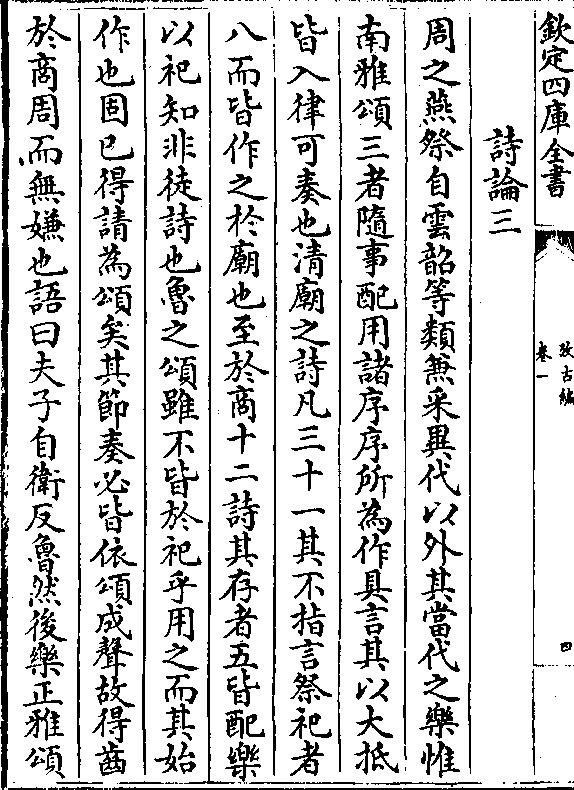 欽定四庫全書
攷古編
卷一
四
詩論三
周之燕祭自雲韶等類兼采異代以外其當代之樂惟
南雅頌三者隨事配用諸序序所為作具言其以大抵
皆入律可奏也清廟之詩凡三十一其不指言祭祀者
八而皆作之於廟也至於商十二詩其存者五皆配樂
以祀知非徒詩也魯之頌雖不皆於祀乎用之而其始
作也固已得請為頌矣其節奏必皆依頌成聲故得齒
於商周而無嫌也語曰夫子自衛反魯然後樂正雅頌